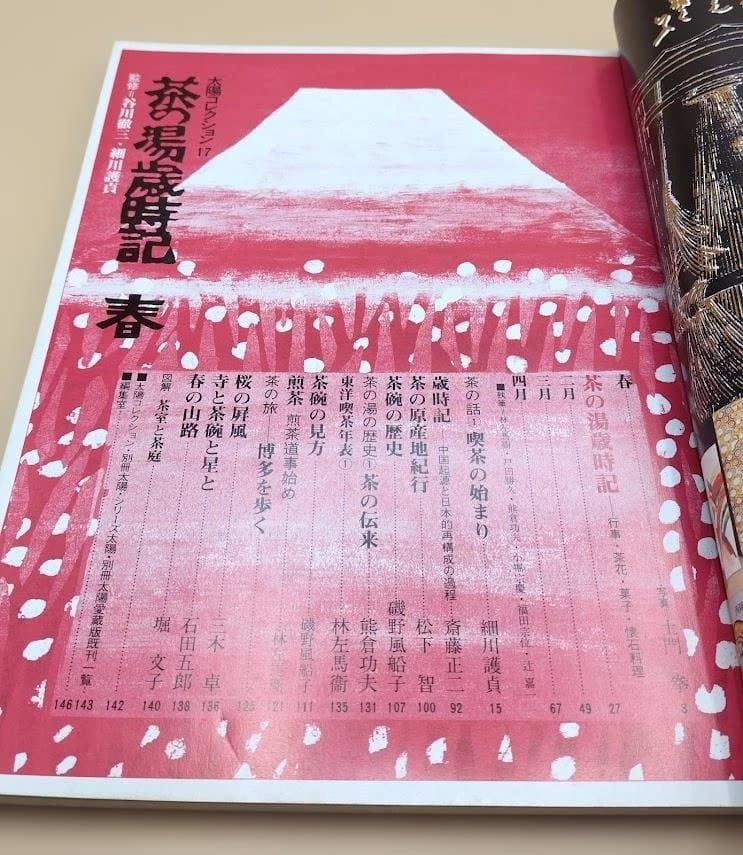 太陽コレクション17
茶の湯歳時記 春
監修=谷川徹三、細川護貞
春 写真 土門 拳 3
茶の湯歳時記——行事・茶花・菓子・懐石料理
二月 27
三月 49
四月 67
■執筆=戸田勝久・熊倉功夫・小堀宗慶・福田宗位・辻 嘉一
茶の話① 喫茶の始まり 細川護貞 15
歳時記——中国起源と日本的再構成の過程 斎藤正二 92
茶の原産地紀行 松下 智 100
茶碗の歴史 磯野風船子 107
茶の湯の歴史① 茶の伝来 熊倉功夫 131
東洋喫茶年表① 林左馬衞 135
茶碗の見方 磯野風船子 111
煎茶 煎茶道事始め 121
茶の旅——博多を歩く 125
桜の屏風 三木 卓 136
寺と茶碗と星と 石田五郎 138
春の山路 堀 文子 140
図解 茶室と茶庭 142
■太陽コレクション・別冊太陽・シリーズ太陽・別冊太陽愛蔵版既刊一覧 143
■編集室 146